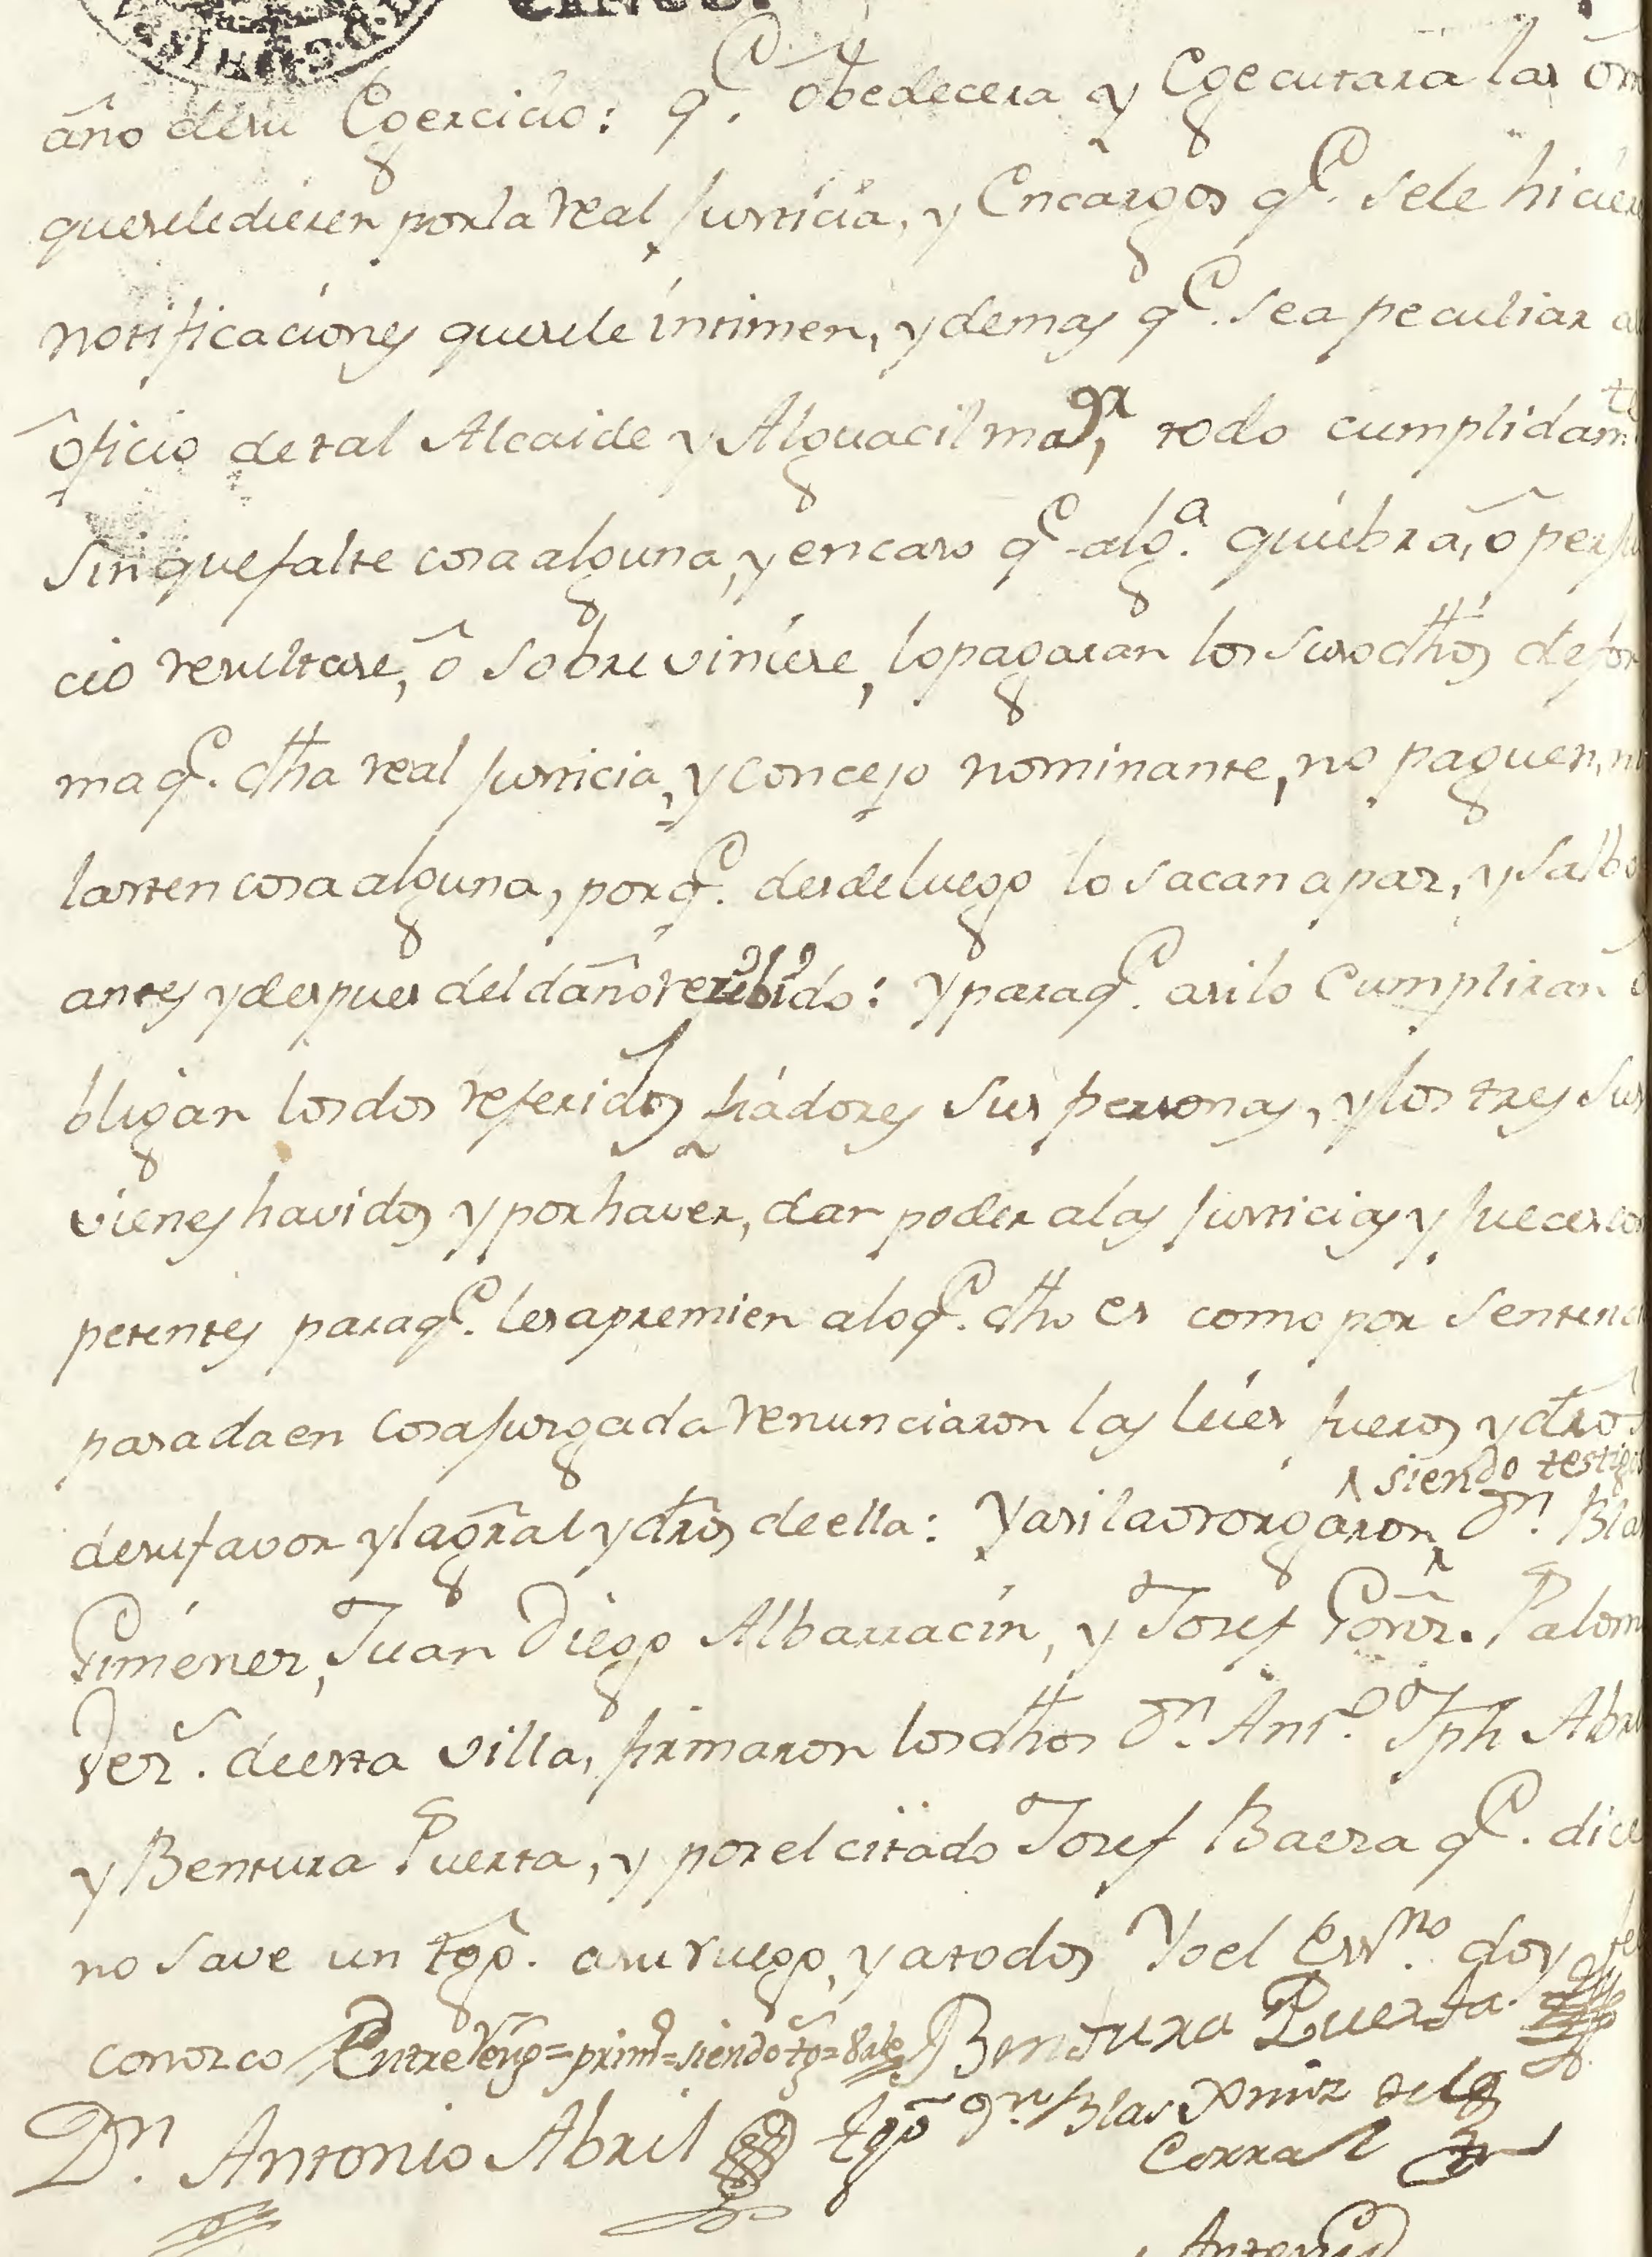 CINCO.
año desu Egercicio: qe. obedecera y Egecutara las orn
queseledieren porla real Justicia, y Encargos qe. sele hicier
notificaciones quesele intimen, y demas qe. sea peculiar al
oficio de tal Alcaide y Alguacil magr, todo cumplidamte
sin quefalte cosa alguna, y encaso qe alga. quiebra, o perjui
cio resultase, o sobreviniese, lopagaran los susodhos defor
ma qe. dha real Justicia, y concejo nominante, no paguen, ni
lasten cosa alguna, porqe. desdeluego lo sacan apaz, y salbo
antes y despues del daño recibido: Y paraqe. asilo Cumpliran o
bligan losdos referidos fiadores sus personas, y los tres sus
vienes havidos y por haver, dan poder alas Justicias y Jueces com
petentes paraqe. les apremien aloqe. dho es como por Sentenci
pasada en Cosa Juzgada renunciaron las leies fueros y dros.
desufavor y la gral y dros de ella: Y asi la otorgaron, siendo testigos Dn. Blas
Gimenez, Juan Diego Albarracin, y Josef Gonz. Palom
Vez. de esta villa, firmaron los dhos Dn. Anto. Jph Abril
y Bentura Puerta, y por el citado Josef Baeza qe. dice
no save un tgo. asu ruego, y a todos Yo el Essno. doy fe
conozco // Entre Reng = prim = siendo tgs = Vale // Bentura Puerta
Dn. Antonio Abril tgo Dn. Blas Xmnz del
Corral